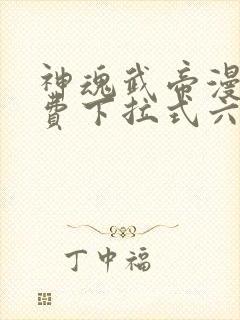 神魂武帝漫
费下拉式六
丁中福